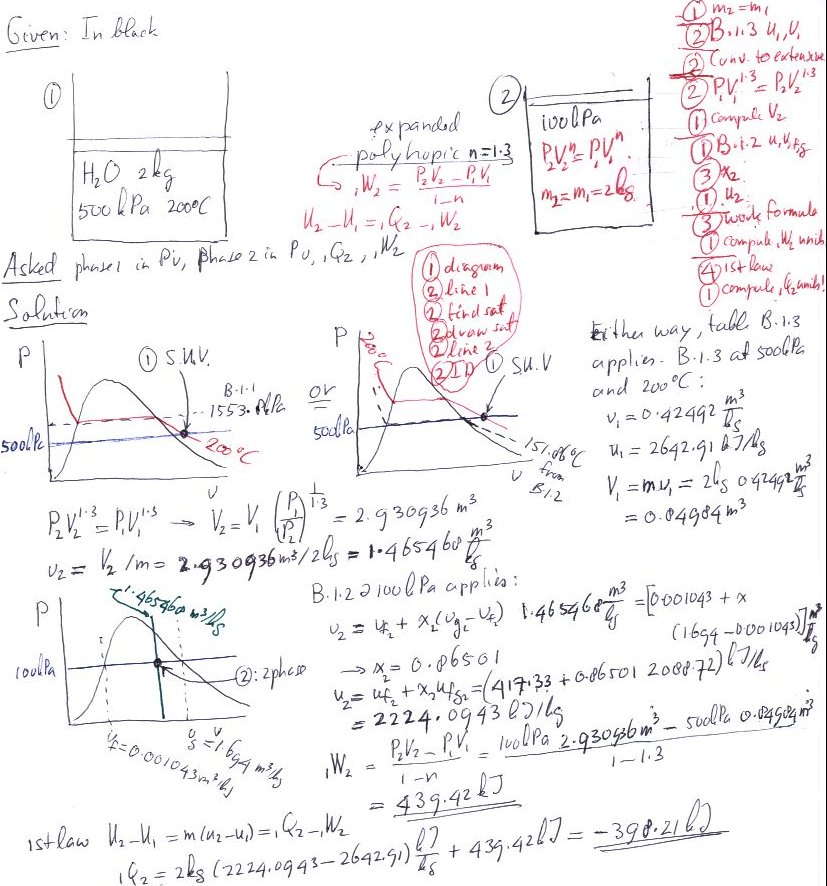 Given: In black
①
H₂O 2kg
500 kPa 200°C
expanded
polytropic n=1.3
₁W₂ = (P₂V₂ - P₁V₁)/(1-n)
U₂ - U₁ = ₁Q₂ - ₁W₂
②
100kPa
P₂V₂ⁿ = P₁V₁ⁿ
m₂ = m₁ = 2kg
① m₂ = m₁
② B.1.3 u₁, v₁
② Conv. to extensive
② P₁V₁^1.3 = P₂V₂^1.3
① compute V₂
① B.1.2 u, v, f, g
③ x₂
① u₂
③ work formula
① compute ₁W₂ units
④ 1st law
① compute ₁Q₂ units!
Asked phase 1 in Pv, phase 2 in Pv, ₁Q₂, ₁W₂
① diagram
② line 1
② find sat
② draw sat
② line 2
② ID
Solution
P
① S.U.V.
B.1.1
1553. kPa
500kPa
200°C
v
or
P
200°C
① S.U.V
500kPa
151.86°C
from
B.1.2
v
Either way, table B.1.3
applies. B.1.3 at 500kPa
and 200°C:
v₁ = 0.42492 m³/kg
u₁ = 2642.91 kJ/kg
V₁ = m v₁ = 2kg 0.42492 m³/kg
= 0.84984 m³
P₂V₂^1.3 = P₁V₁^1.3 → V₂ = V₁ (P₁/P₂)^(1/1.3) = 2.930936 m³
v₂ = V₂/m = 2.930936 m³/2kg = 1.465468 m³/kg
P
1.465468 m³/kg
100kPa
②: 2phase
v
v_f = 0.001043 m³/kg
v_g = 1.694 m³/kg
B.1.2 @ 100kPa applies:
v₂ = v_f₂ + x₂(v_g₂ - v_f₂) 1.465468 m³/kg = [0.001043 + x
(1.694 - 0.001043)] m³/kg
→ x₂ = 0.86501
u₂ = u_f₂ + x₂ u_fg₂ = (417.33 + 0.86501 2088.72) kJ/kg
= 2224.0943 kJ/kg
₁W₂ = (P₂V₂ - P₁V₁)/(1-n) = (100kPa 2.930936 m³ - 500kPa 0.84984 m³)/(1-1.3)
= 439.42 kJ
1st law U₂ - U₁ = m(u₂ - u₁) = ₁Q₂ - ₁W₂
₁Q₂ = 2kg (2224.0943 - 2642.91) kJ/kg + 439.42 kJ = -398.21 kJ